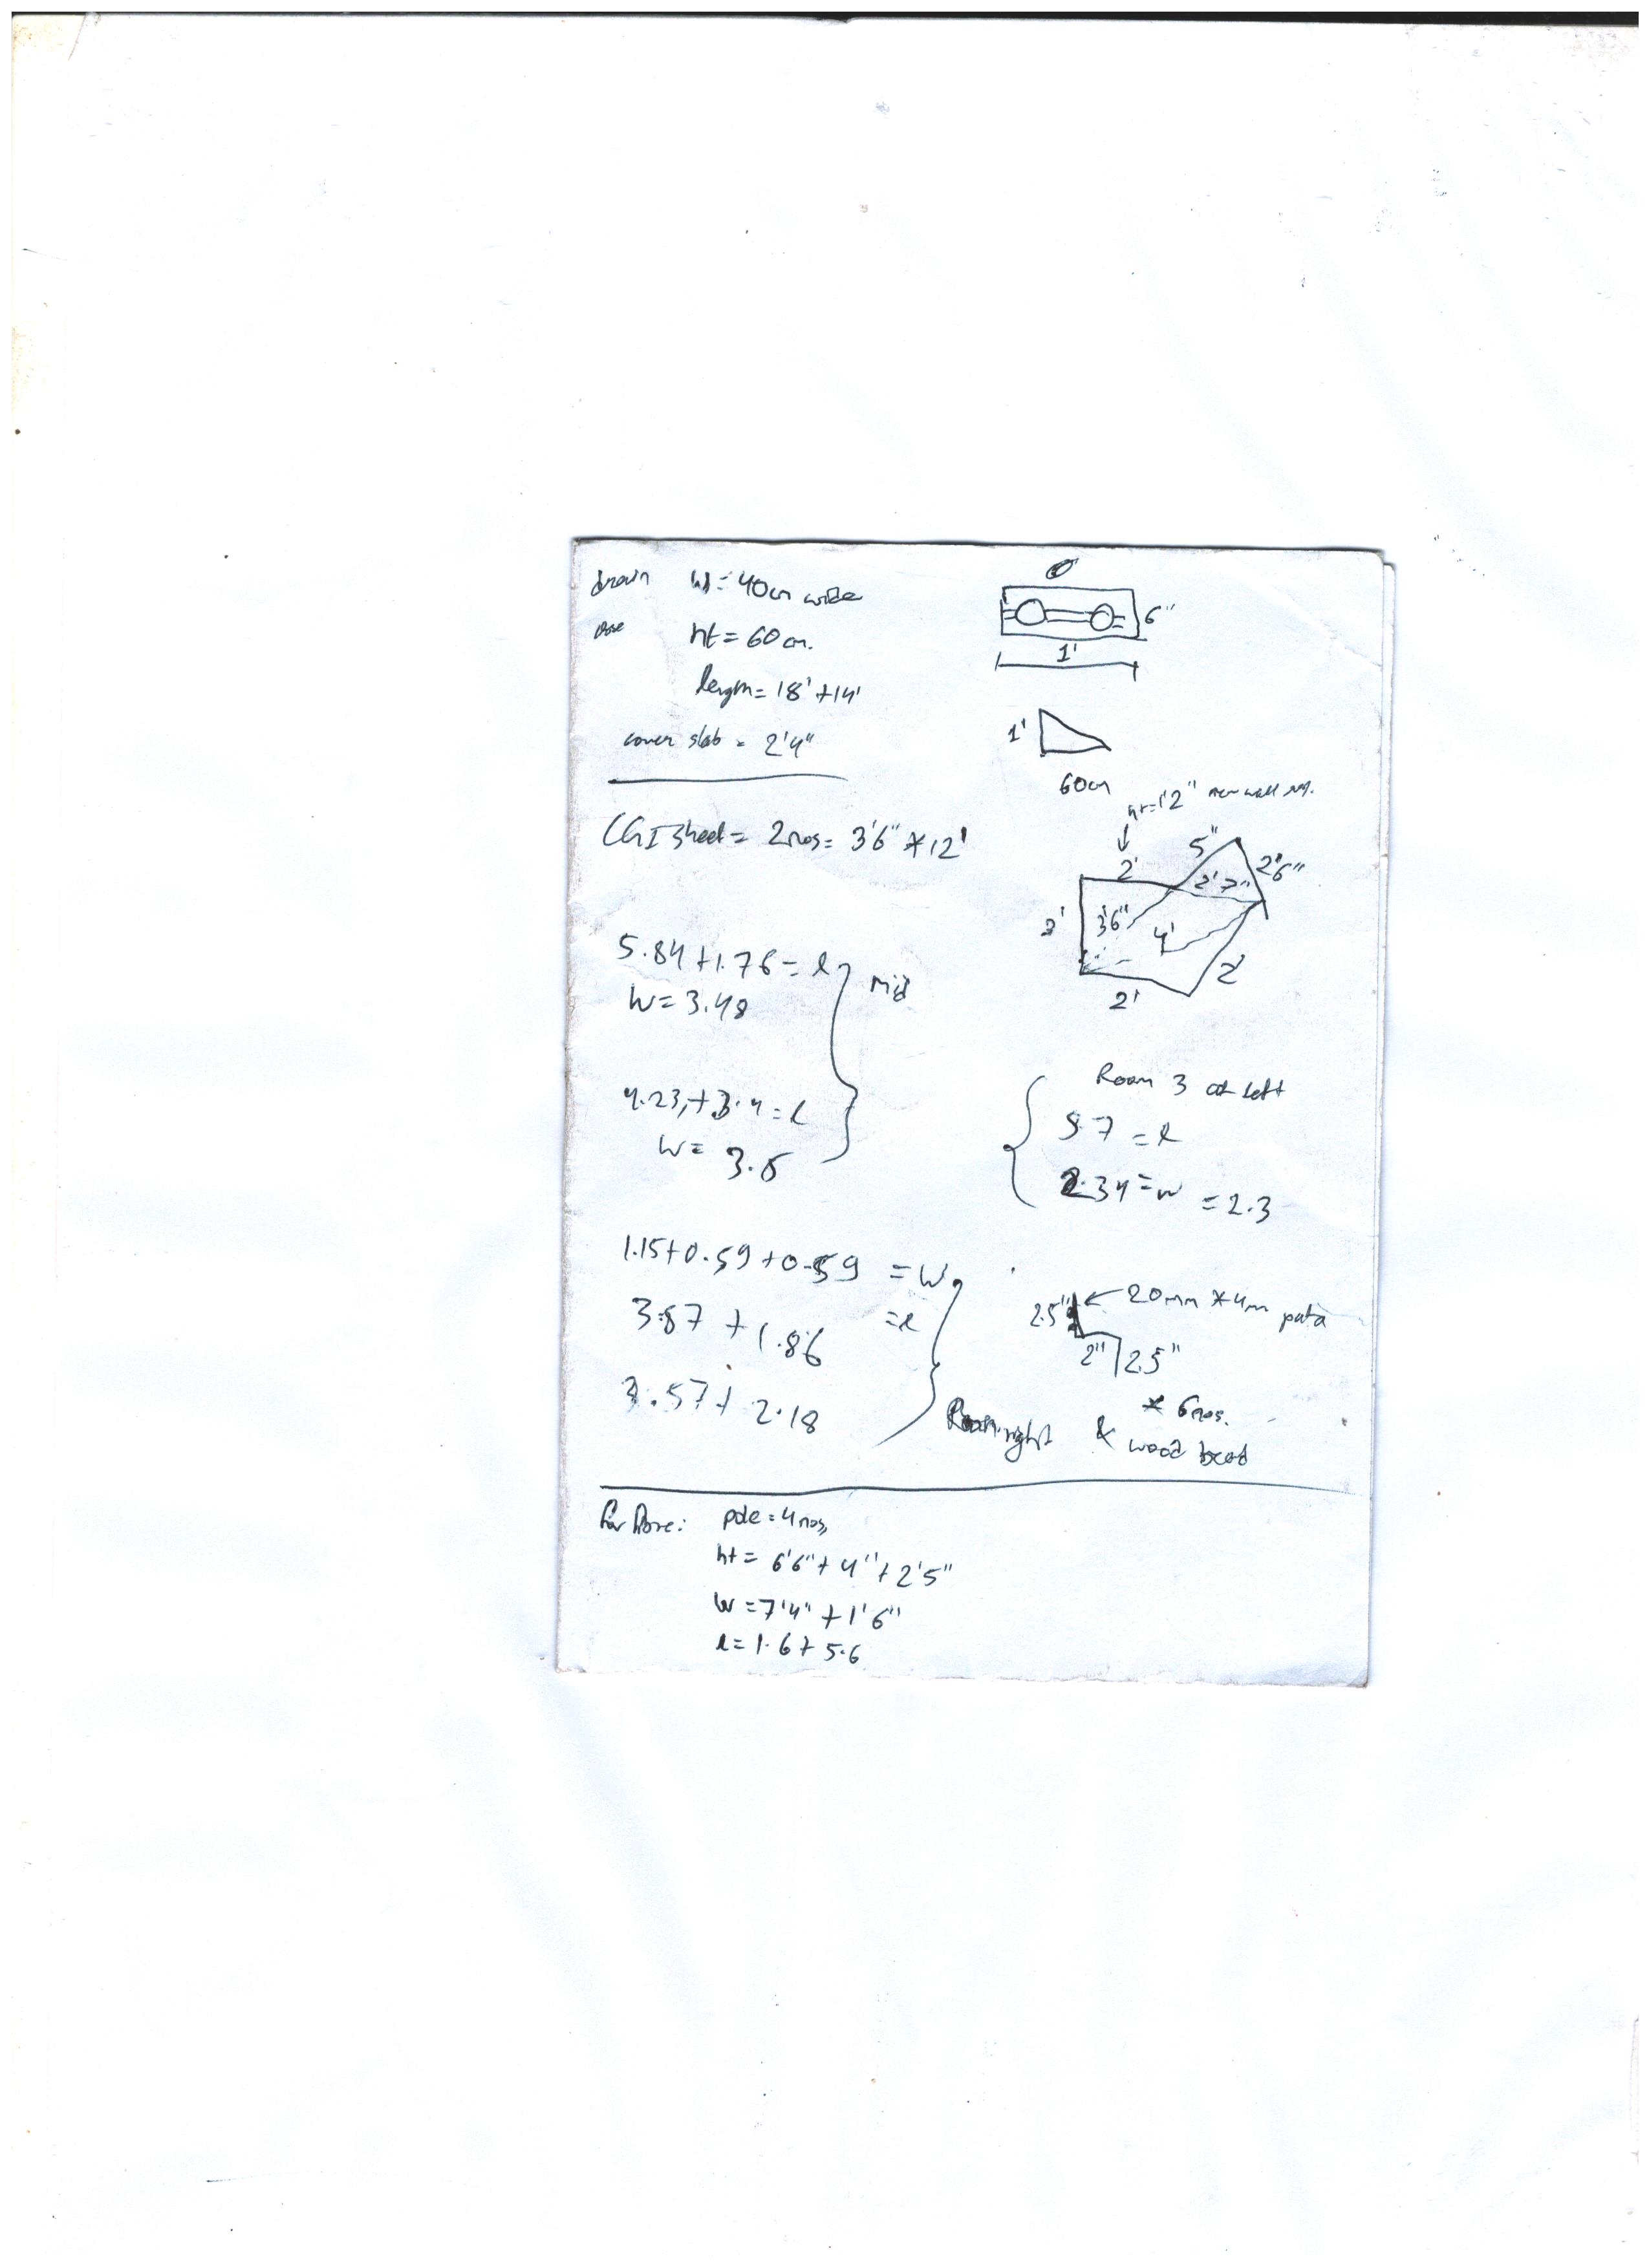 drain w = 40cm wide
ht = 60 cm.
length = 18' + 14'
cover slab = 2'4"
6"
1'
1'
60cm
CGI sheet = 2nos = 3'6" * 12'
ht = 12"
2'
5"
2'6"
2'7"
3'
3'6"
4'
2'
2'
5.84 + 1.76 = l
w = 3.48
mid
4.23 + 3.4 = l
w =
Room 3 at left
= l
2.34 = w = 2.3
1.15 + 0.59 + 0.59 = w
3.87 + 1.86 = l
3.57 + 2.18
Room right
2.5"
20mm * 4mm pata
2" 2.5"
* 6nos.
& wood
pole = 4nos,
ht = 6'6" + 4" + 2'5"
w = 7'4" + 1'6"
l = 1.6 + 5.6